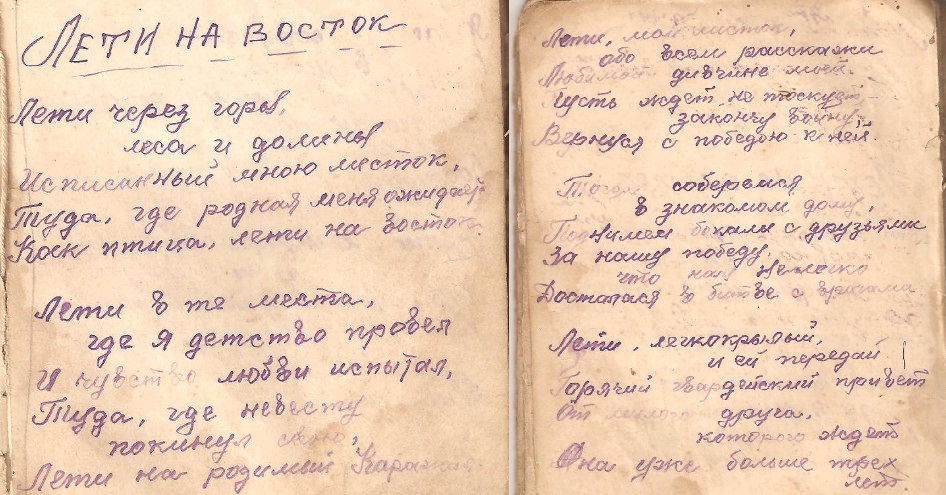 ЛЕТИ НА ВОСТОК
Лети через горы,
леса и долины
Исписанный мною листок,
Туда, где родная меня ожидает
Как птица, лети на восток.
Лети в те места,
где я детство провел
И чувство любви испытал,
Туда, где невесту
покинул
Лети на родимый
Лети, мой листок,
обо всем расскажи
Любимой дивчине моей.
Пусть ждет, не тоскует,
закончу войну,
Вернуся с победою к ней.
соберемся
в знакомом дому,
Поднимем бокалы с друзьями
За нашу победу,
что нам нелегко
Досталася в битве с врагами
Лети, легкокрылый,
и ей передай
Горячий гвардейский привет
От милого друга,
которого ждет
Она уже больше трех
лет.